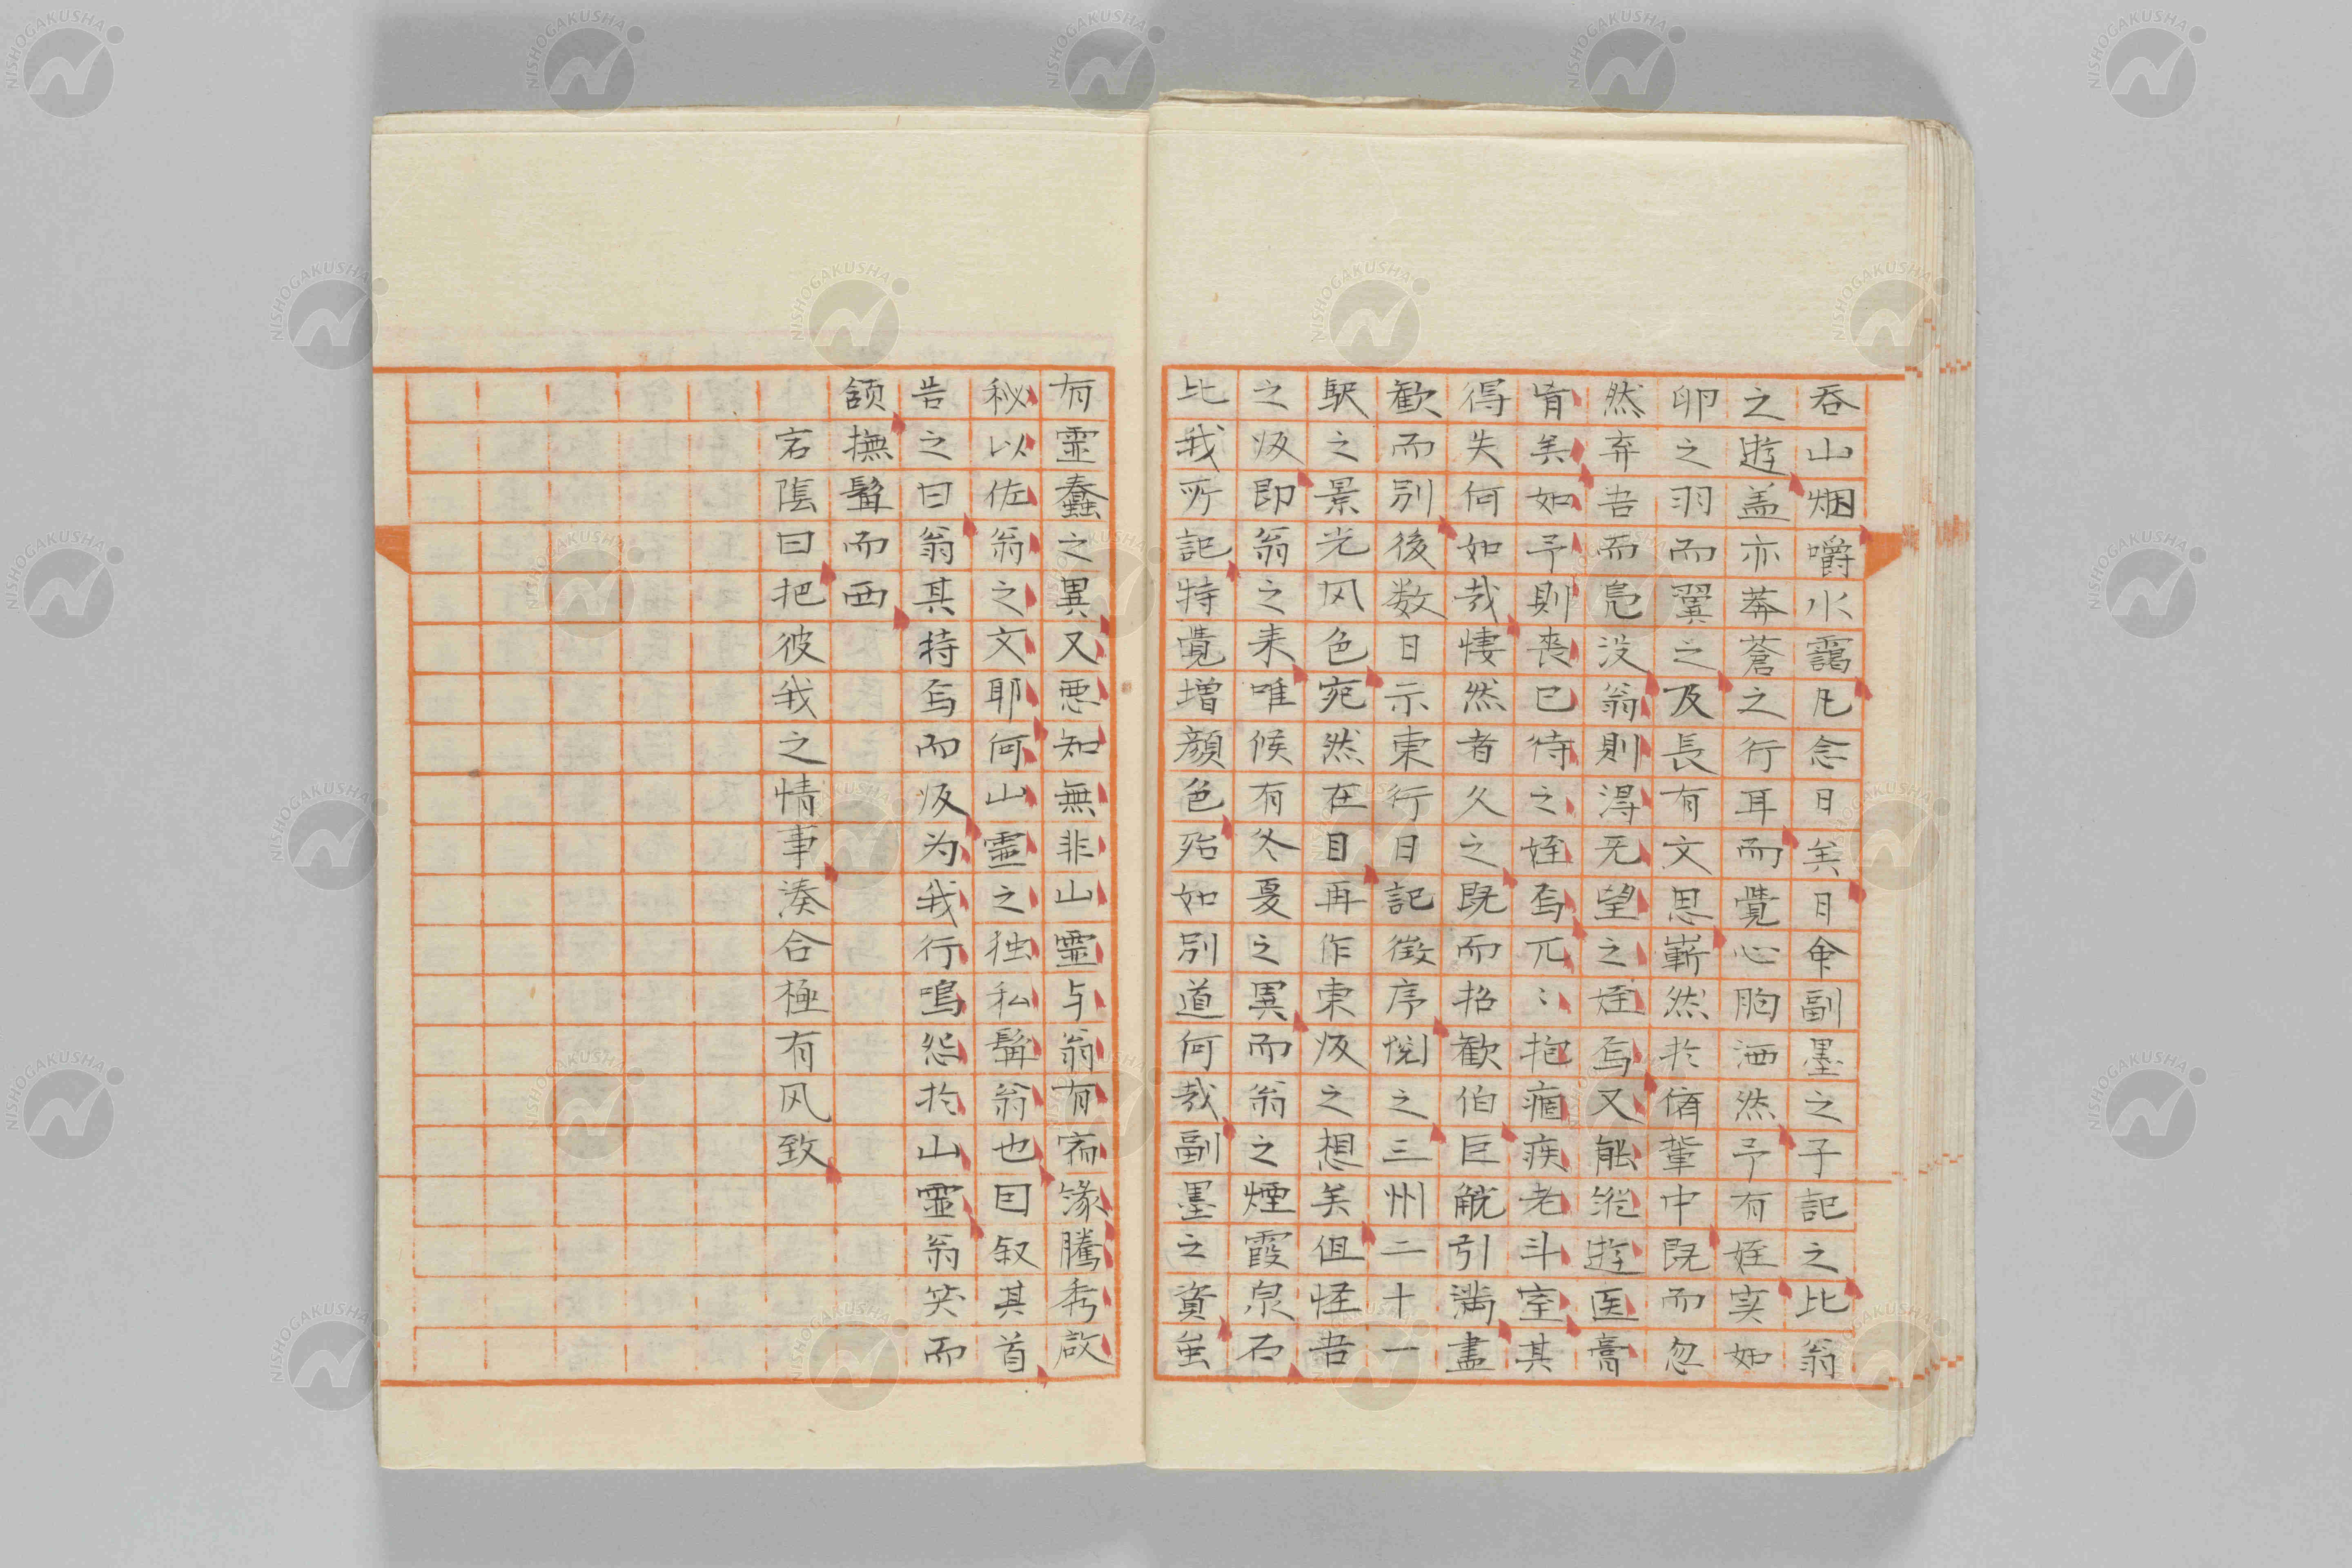 呑山烟嚼水靄凡念日矣日命副墨之子記之比翁
之遊盖亦莽蒼之行耳而覺心胸洒然予有姪実如
卵之羽而翼之及長有文思嶄然於儕輩中既而忽
然弃吾而鳬没翁則淂无望之姪焉又能従遊医膏
肓矣如予則喪已待之姪焉兀〻抱痼疾老斗室其
得失何如哉悽然者久之既而招歓伯巨觥引満盡
歓而別後数日示東行日記徴序悦之三州二十一
駅之景光风色宛然在目再作東歸之想矣但怪吾
之皈即翁之来唯候有冬夏之異而翁之煙霞泉石
比我所記特覺増顔色殆如別道何哉副墨之資虽
有霊蠢之異又悪知無非山霊与翁有宿縁騰秀啟
秘以佐翁之文耶何山霊之独私髯翁也因叙其首
告之曰翁其持焉而皈为我行嗚怨於山霊翁笑而
頷撫髯而西
宕陰曰把彼我之情事湊合極有风致
NISHOGAKUSHA